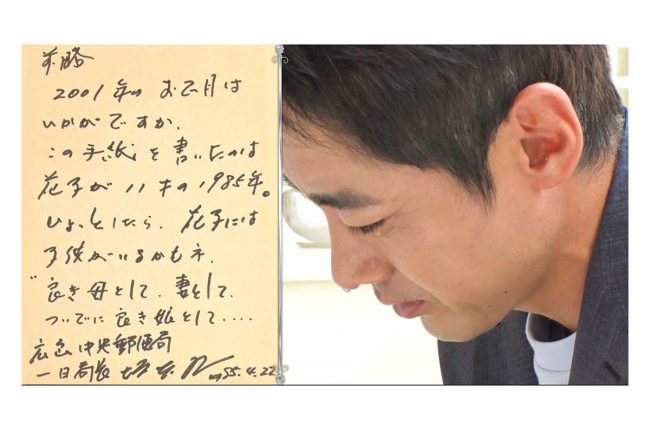 前略
2001年の お正月は
いかがですか.
この手紙を書いたのは
花子が 11才の1985年。
ひょっとしたら、花子には
子供がいるかもネ.
"良き母として、妻として、
ついでに良き娘として....
広島中央郵便局
一日局長 坂本九 '85.4.22